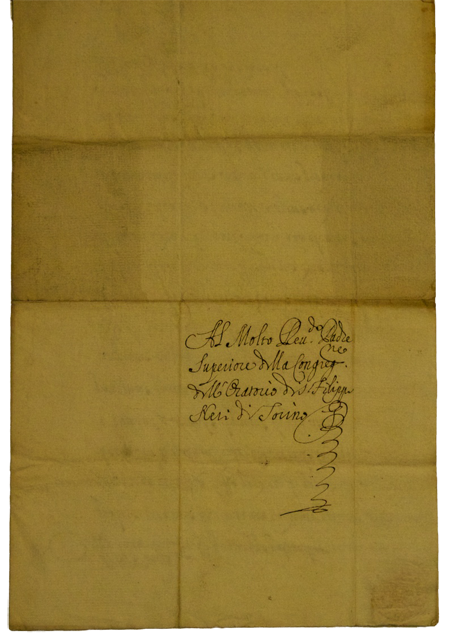 Al Molto Reu.do Padre
Superiore della Congreg.ne
dell'Oratorio di S. Filippo
Neri di Torino